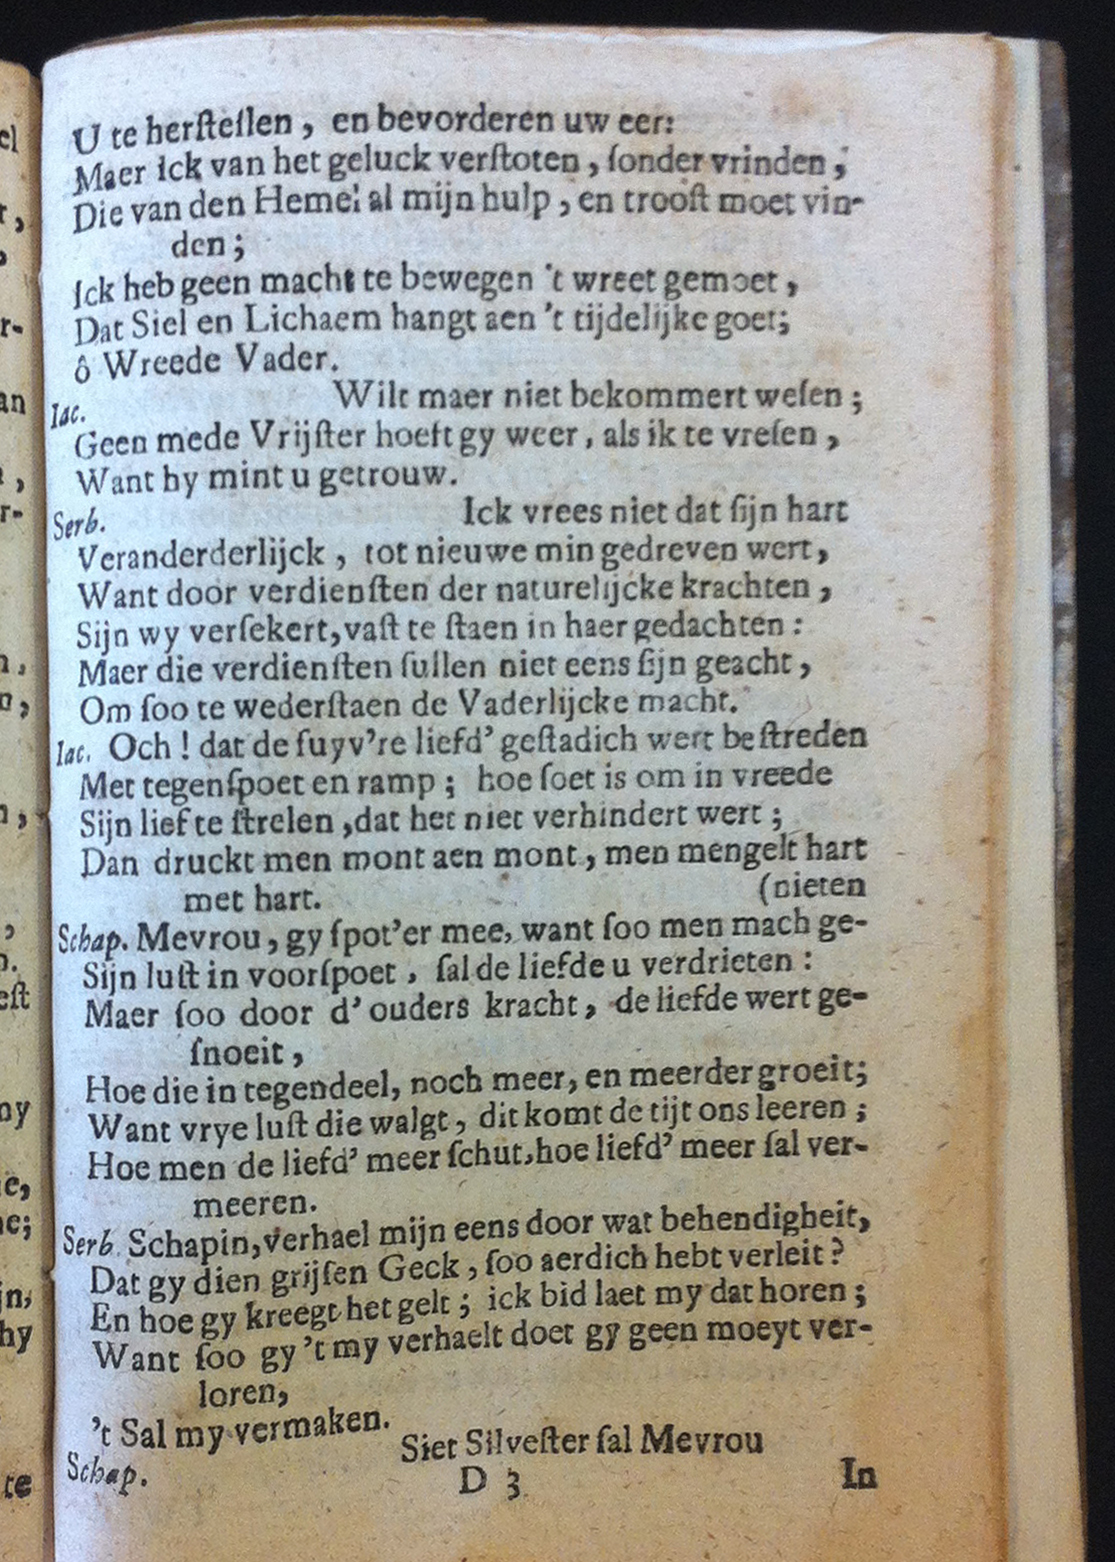 U te herſtellen, en bevorderen uw eer:
Maer ick van het geluck verſtoten, ſonder vrinden,
Die van den Hemel al mijn hulp, en trooſt moet vin-
den;
Ick heb geen macht te bewegen 't wreet gemoet,
Dat Siel en Lichaem hangt aen 't tijdelijke goet;
ô Wreede Vader.
Iac. Wilt maer niet bekommert weſen;
Geen mede Vrijſter hoeft gy weer, als ik te vreſen,
Want hy mint u getrouw.
Serb. Ick vrees niet dat ſijn hart
Veranderderlijck, tot nieuwe min gedreven wert,
Want door verdienſten der naturelijcke krachten,
Sijn wy verſekert, vaſt te ſtaen in haer gedachten:
Maer die verdienſten ſullen niet eens ſijn geacht,
Om ſoo te wederſtaen de Vaderlijcke macht.
Iac. Och! dat de ſuyv're liefd' geſtadich wert beſtreden
Met tegenſpoet en ramp; hoe ſoet is om in vreede
Sijn lief te ſtrelen, dat het niet verhindert wert;
Dan druckt men mont aen mont, men mengelt hart
met hart. (nieten
Schap. Mevrou, gy ſpot'er mee, want ſoo men mach ge-
Sijn luſt in voorſpoet, ſal de liefde u verdrieten:
Maer ſoo door d'ouders kracht, de liefde wert ge-
ſnoeit,
Hoe die in tegendeel, noch meer, en meerder groeit;
Want vrye luſt die walgt, dit komt de tijt ons leeren;
Hoe men de liefd' meer ſchut, hoe liefd' meer ſal ver-
meeren.
Serb. Schapin, verhael mijn eens door wat behendigheit,
Dat gy dien grijſen Geck, ſoo aerdich hebt verleit?
En hoe gy kreegt het gelt; ick bid laet my dat horen;
Want ſoo gy 't my verhaelt doet gy geen moeyt ver-
loren,
't Sal my vermaken.
Schap. Siet Silveſter ſal Mevrou
D 3 In